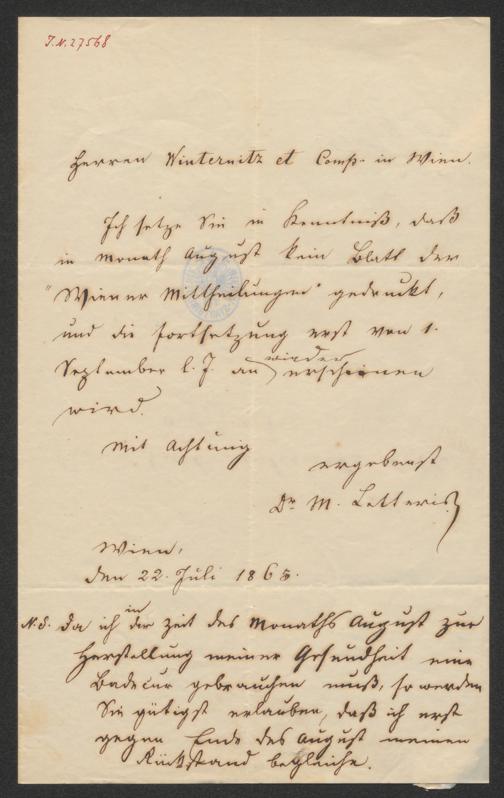 J.N. 27568
Herren Winternitz et Comp. in Wien.
Ich setze Sie in Kenntniß, daß
im Monath August kein Blatt der
"Wiener Mittheilungen" gedruckt,
und die Fortsetzung erst von 1.
September l. J. an wieder erscheinen
wird.
Mit Achtung
ergebenst
Dr M. Letteris
Wien,
den 22. Juli 1865.
N.S. Da ich in der Zeit des Monaths August zur
Herstellung meiner Gesundheit eine
Badecur gebrauchen muß, so werden
Sie gütigst erlauben, daß ich erst
gegen Ende des August meinen
Rückstand begleiche.